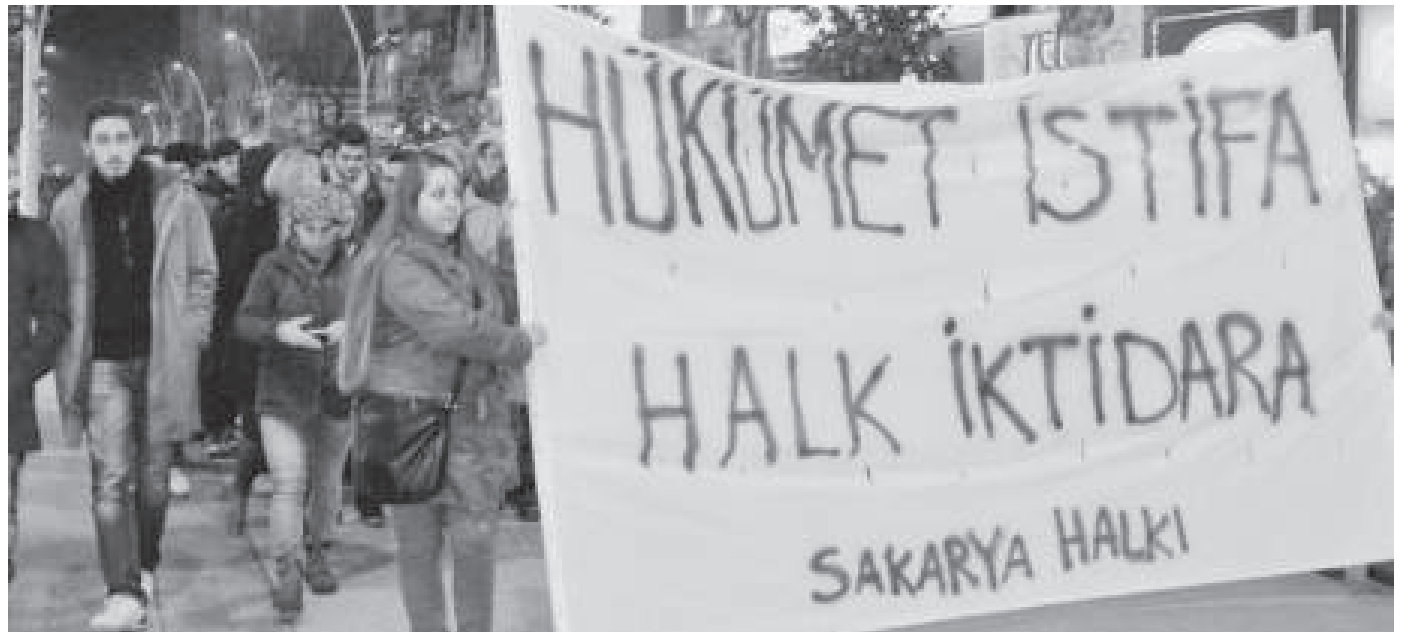 HÜKÜMET İSTİFA
HALK İKTİDARA
SAKARYA HALKI